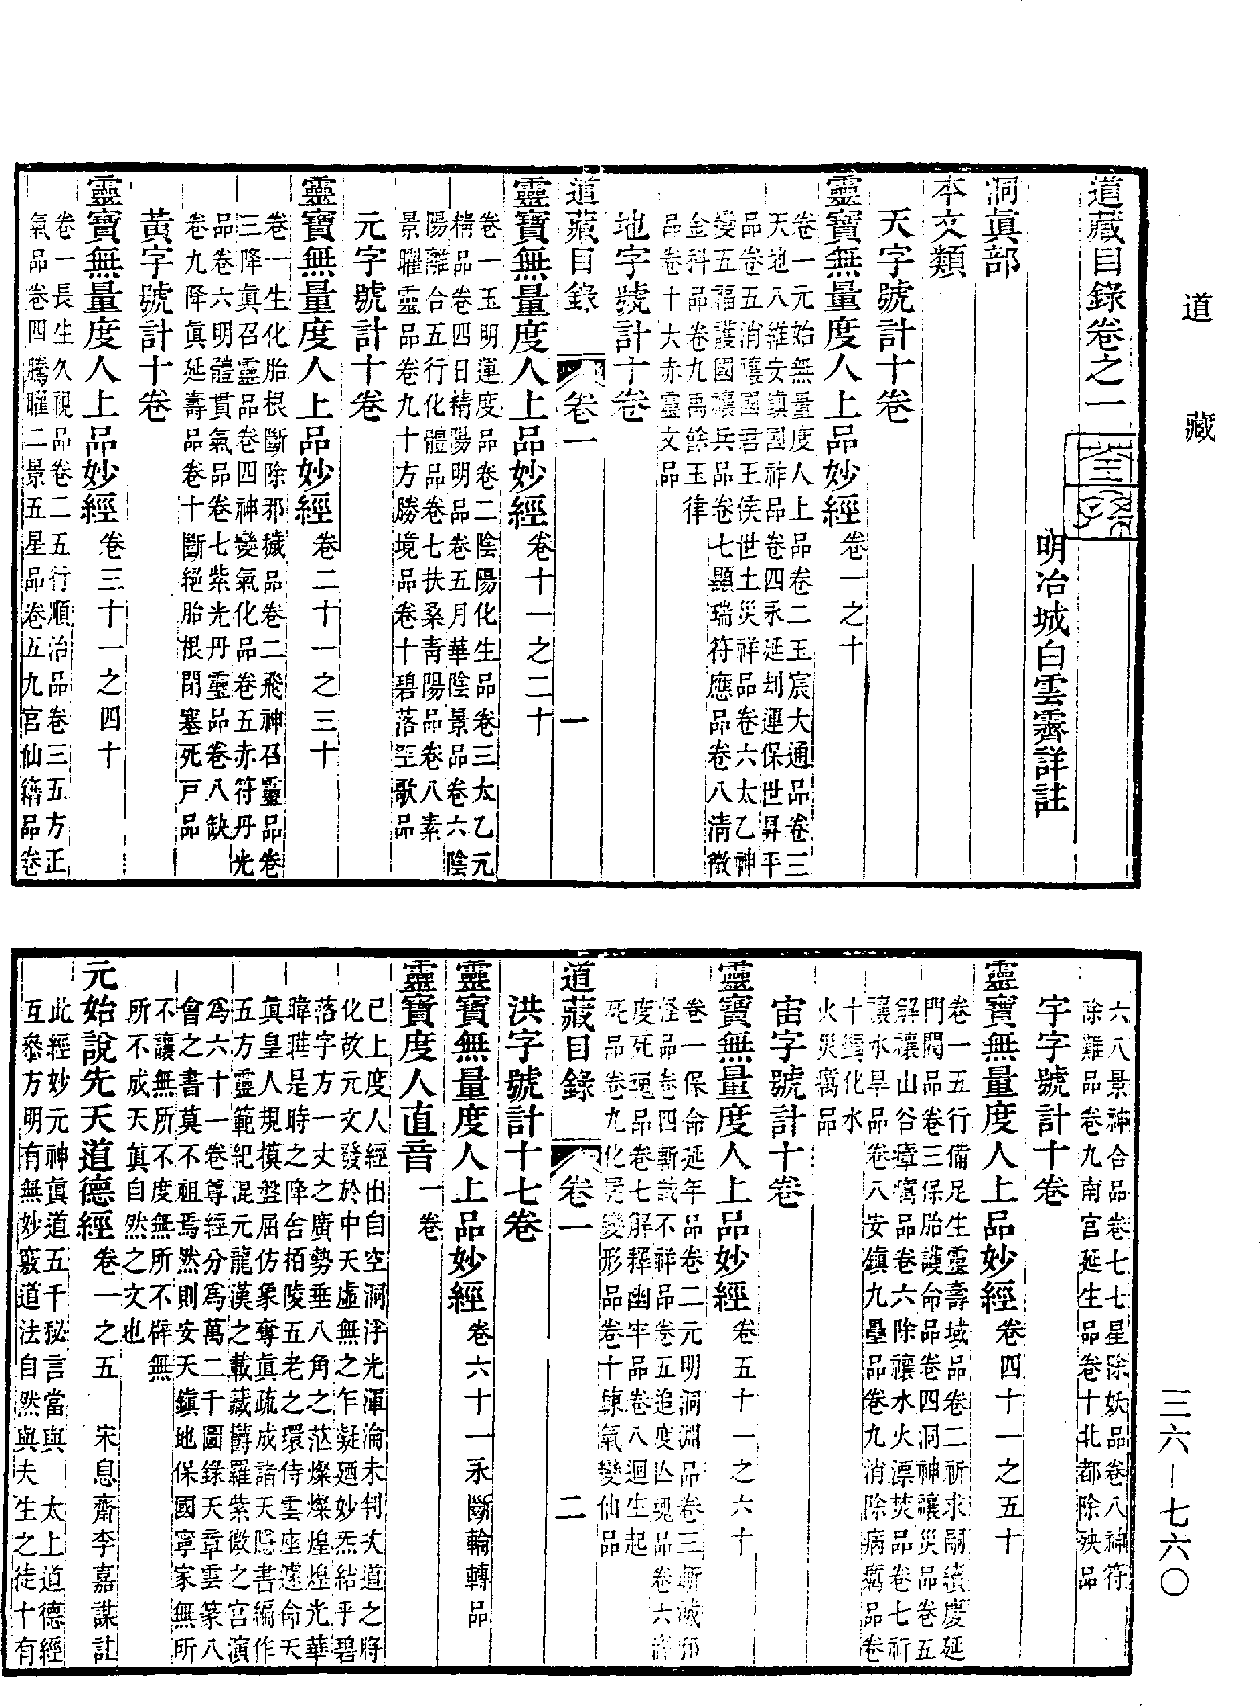 道藏
道藏目錄卷之一
明冶城白雲霽詳註
洞眞部
本文類
天字號計十卷
靈寶無量度人上品妙經 卷一之十
卷一元始無量度人上品卷二玉宸大通品卷三
天地八維安鎮國祚品卷四永延劫運保世昇平
品卷五消禳國君王侯世土災祥品卷六太乙神
變五福護國禳兵品卷七顯瑞符應品卷八清微
金科品卷九禹餘玉律
品卷十大赤靈文品
地字號計十卷
道藏目錄 卷一 一
靈寶無量度人上品妙經 卷十一之二十
卷一玉明運度品卷二陰陽化生品卷三太乙元
精品卷四日精陽明品卷五月華陰景品卷六陰
陽離合五行化體品卷七扶桑靑陽品卷八素
景曜靈品卷九十方勝境品卷十碧落空歌品
元字號計十卷
靈寶無量度人上品妙經 卷二十一之三十
卷一生化胎根斷除邪穢品卷二飛神召靈品卷
三降眞召靈品卷四神變氣化品卷五赤符丹光
品卷六明體貫氣品卷七紫光丹靈品卷八缺
卷九降眞延壽品卷十斷絕胎根閉塞死戸品
黃字號計十卷
靈寶無量度人上品妙經 卷三十一之四十
卷一長生久視品卷二五行順治品卷三五方正
氣品卷四騰曜二景五星品卷五九宮仙籍品卷
六八景神合品卷七七星除妖品卷八神符
除難品卷九南宮延生品卷十北都除殃品
宇字號計十卷
靈寶無量度人上品妙經 卷四十一之五十
卷一五行備足生靈壽域品卷二祈求嗣續慶延
門閥品卷三保胎護命品卷四洞神禳災品卷五
解禳山谷瘴癘品卷六除禳水火漂焚品卷七祈
禳水旱品卷八安鎮九壘品卷九消除病癘品卷
十靈化水
火災癘品
宙字號計十卷
靈寶無量度人上品妙經 卷五十一之六十
卷一保命延年品卷二元明洞淵品卷三斬滅邪
怪品卷四斬試不祥品卷五追度亾魂品卷六濟
度死魂品卷七解釋幽牢品卷八迴生起
死品卷九化尸變形品卷十鍊氣變仙品
道藏目錄 卷一 二
洪字號計十七卷
靈寶無量度人上品妙經 卷六十一永斷輪轉品
靈寶度人直音一卷
已上度人經出自空洞浮光渾淪未判大道之將
化故元文發於中天虛無之乍凝廼妙炁結乎碧
落字方一丈之廣勢垂八角之茫燦燦煌煌光華
暐瞱是時之降舍栢陵五老之環侍雲座遽命天
眞皇人規模盤屈仿象奪眞疏成諸天隱書編作
五方靈範紀混元龍漢之載藏欝羅紫微之宮演
爲六十一卷尊經分爲萬二千圖錄天章雲篆八
會之書莫不祖焉然則安天鎮地保國寧家無所
不讓無所不度無所不辟無
所不成天眞自然之文也
元始說先天道德經 卷一之五 宋息齋李嘉謀註
此經妙元神眞道五千秘言當與 太上道德經
互叅方明有無妙竅道法自然與夫生之徒十有
三六-七六〇